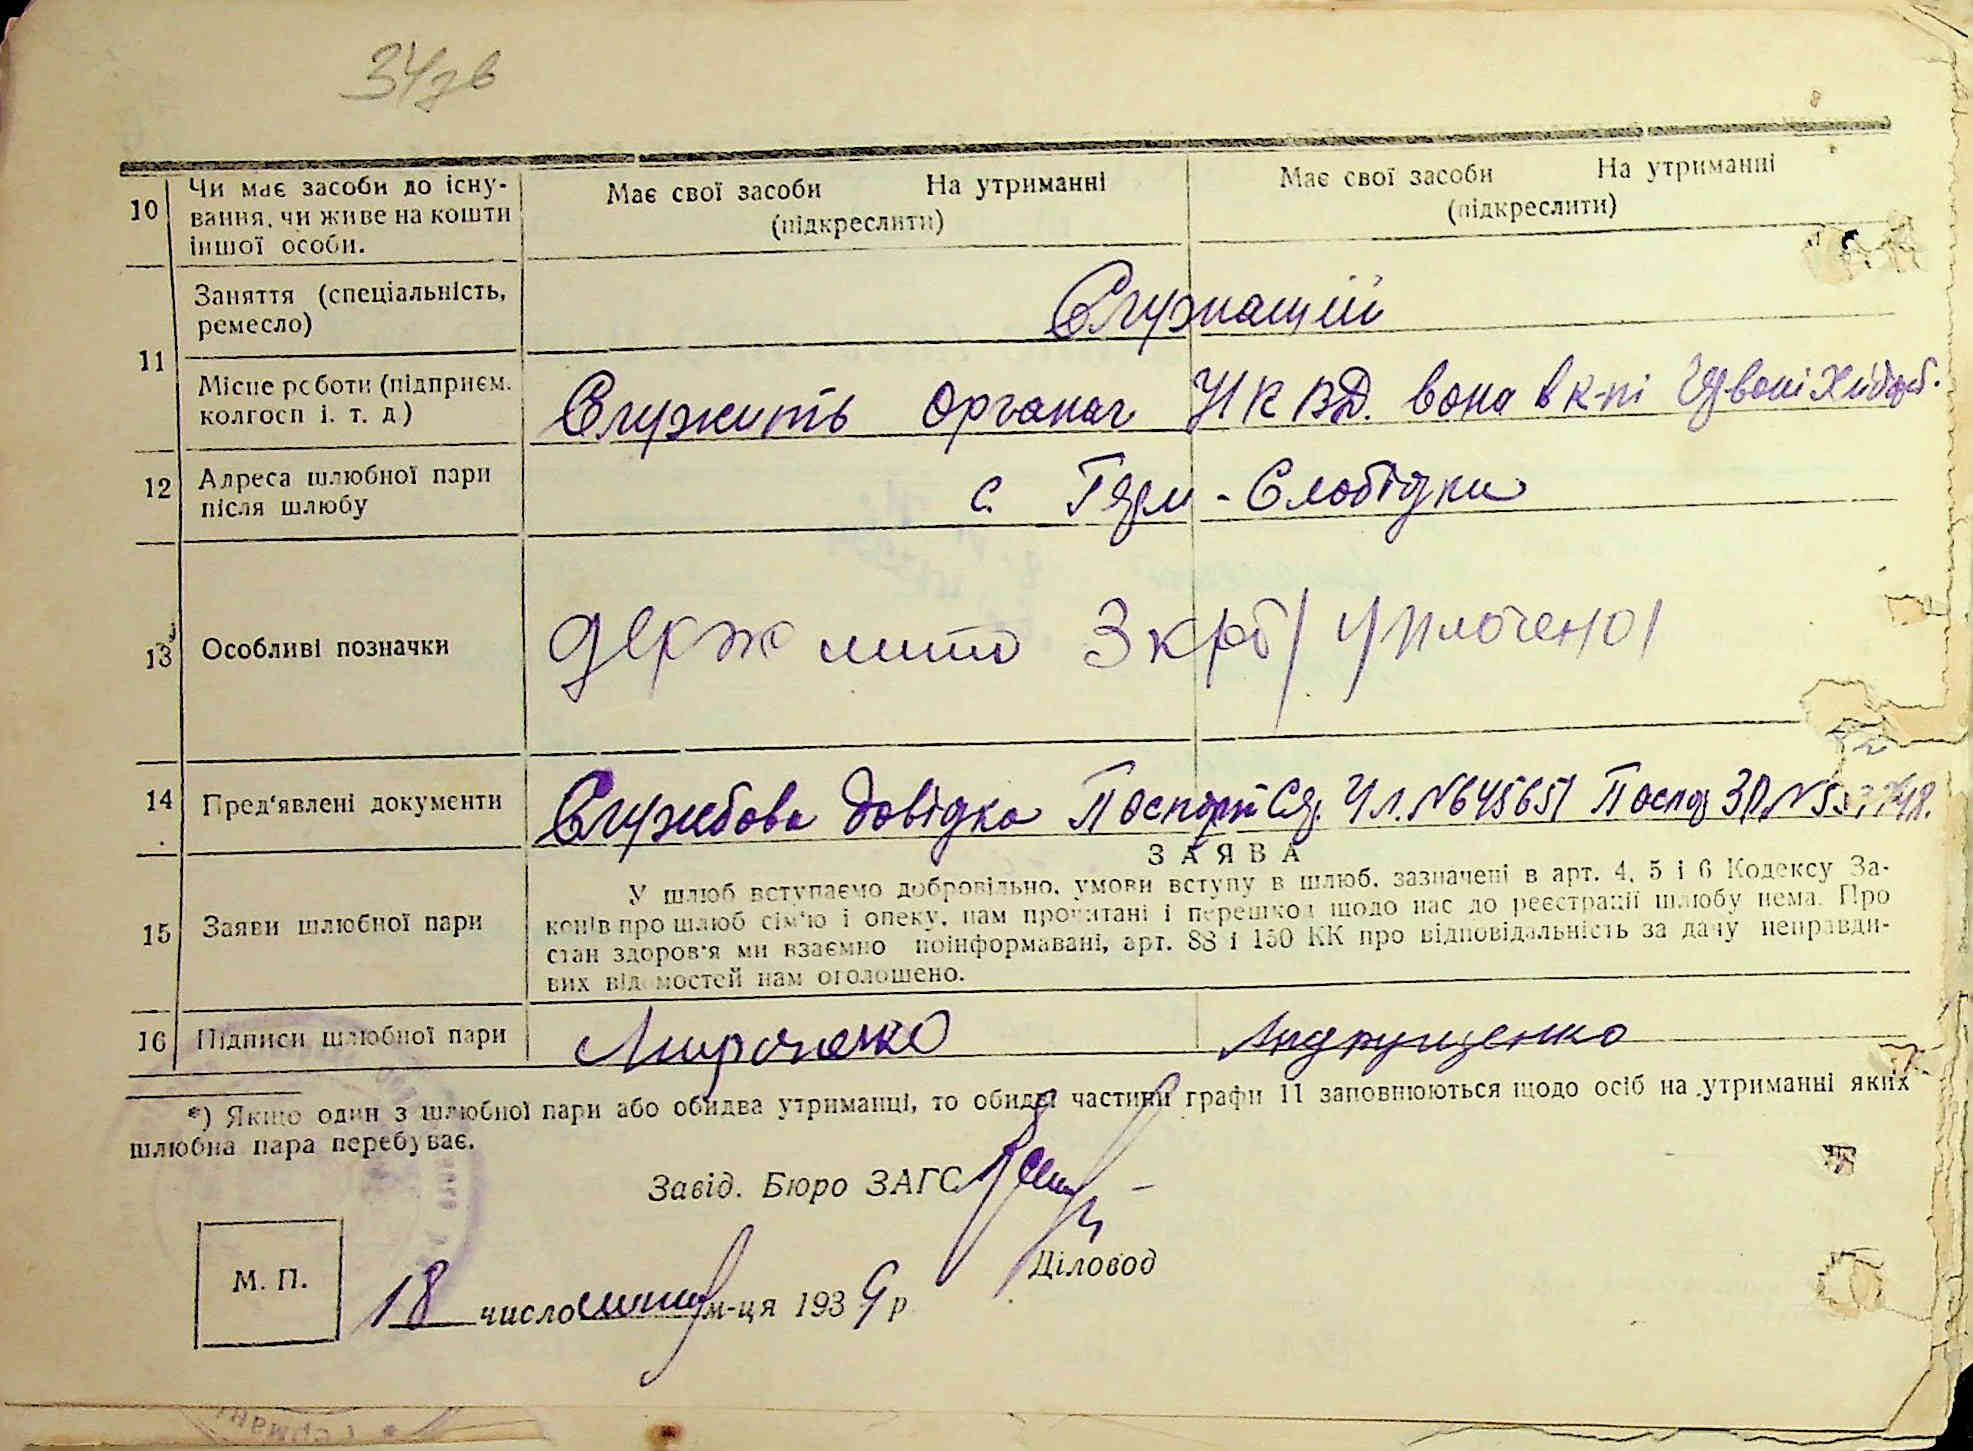 34зв
10 Чи має засоби до існу-
вання, чи живе на кошти
іншої особи.
Має свої засоби На утриманні
(підкреслити)
Має свої засоби На утриманні
(підкреслити)
11 Заняття (спеціальність,
ремесло)
Служащий
Місце роботи (підприєм.
колгосп і. т. д.)
Служить Органах НКВД. вона в к-пі
12 Адреса шлюбної пари
після шлюбу
с. Слобідки
13 Особливі позначки
держ мито 3 крб/уплочено/
14 Пред'явлені документи
Службова довідка Паспорт №645651
15 Заяви шлюбної пари
ЗАЯВА
У шлюб вступаємо добровільно, умови вступу в шлюб, зазначені в арт. 4, 5 і 6 Кодексу За-
конів про шлюб сім'ю і опеку, нам прочитані і перешкод щодо нас до реєстрації шлюбу нема. Про
стан здоров'я ми взаємно поінформавані, арт. 88 і 150 КК про відповідальність за дачу неправди-
вих відомостей нам оголошено.
16 Підписи шлюбної пари
Андрущенко
*) Якщо один з шлюбної пари або обидва утриманці, то обидві частини графи 11 заповнюються щодо осіб на утриманні яких
шлюбна пара перебуває.
Завід. Бюро ЗАГС
Діловод
М. П.
18 число м-ця 1939 р